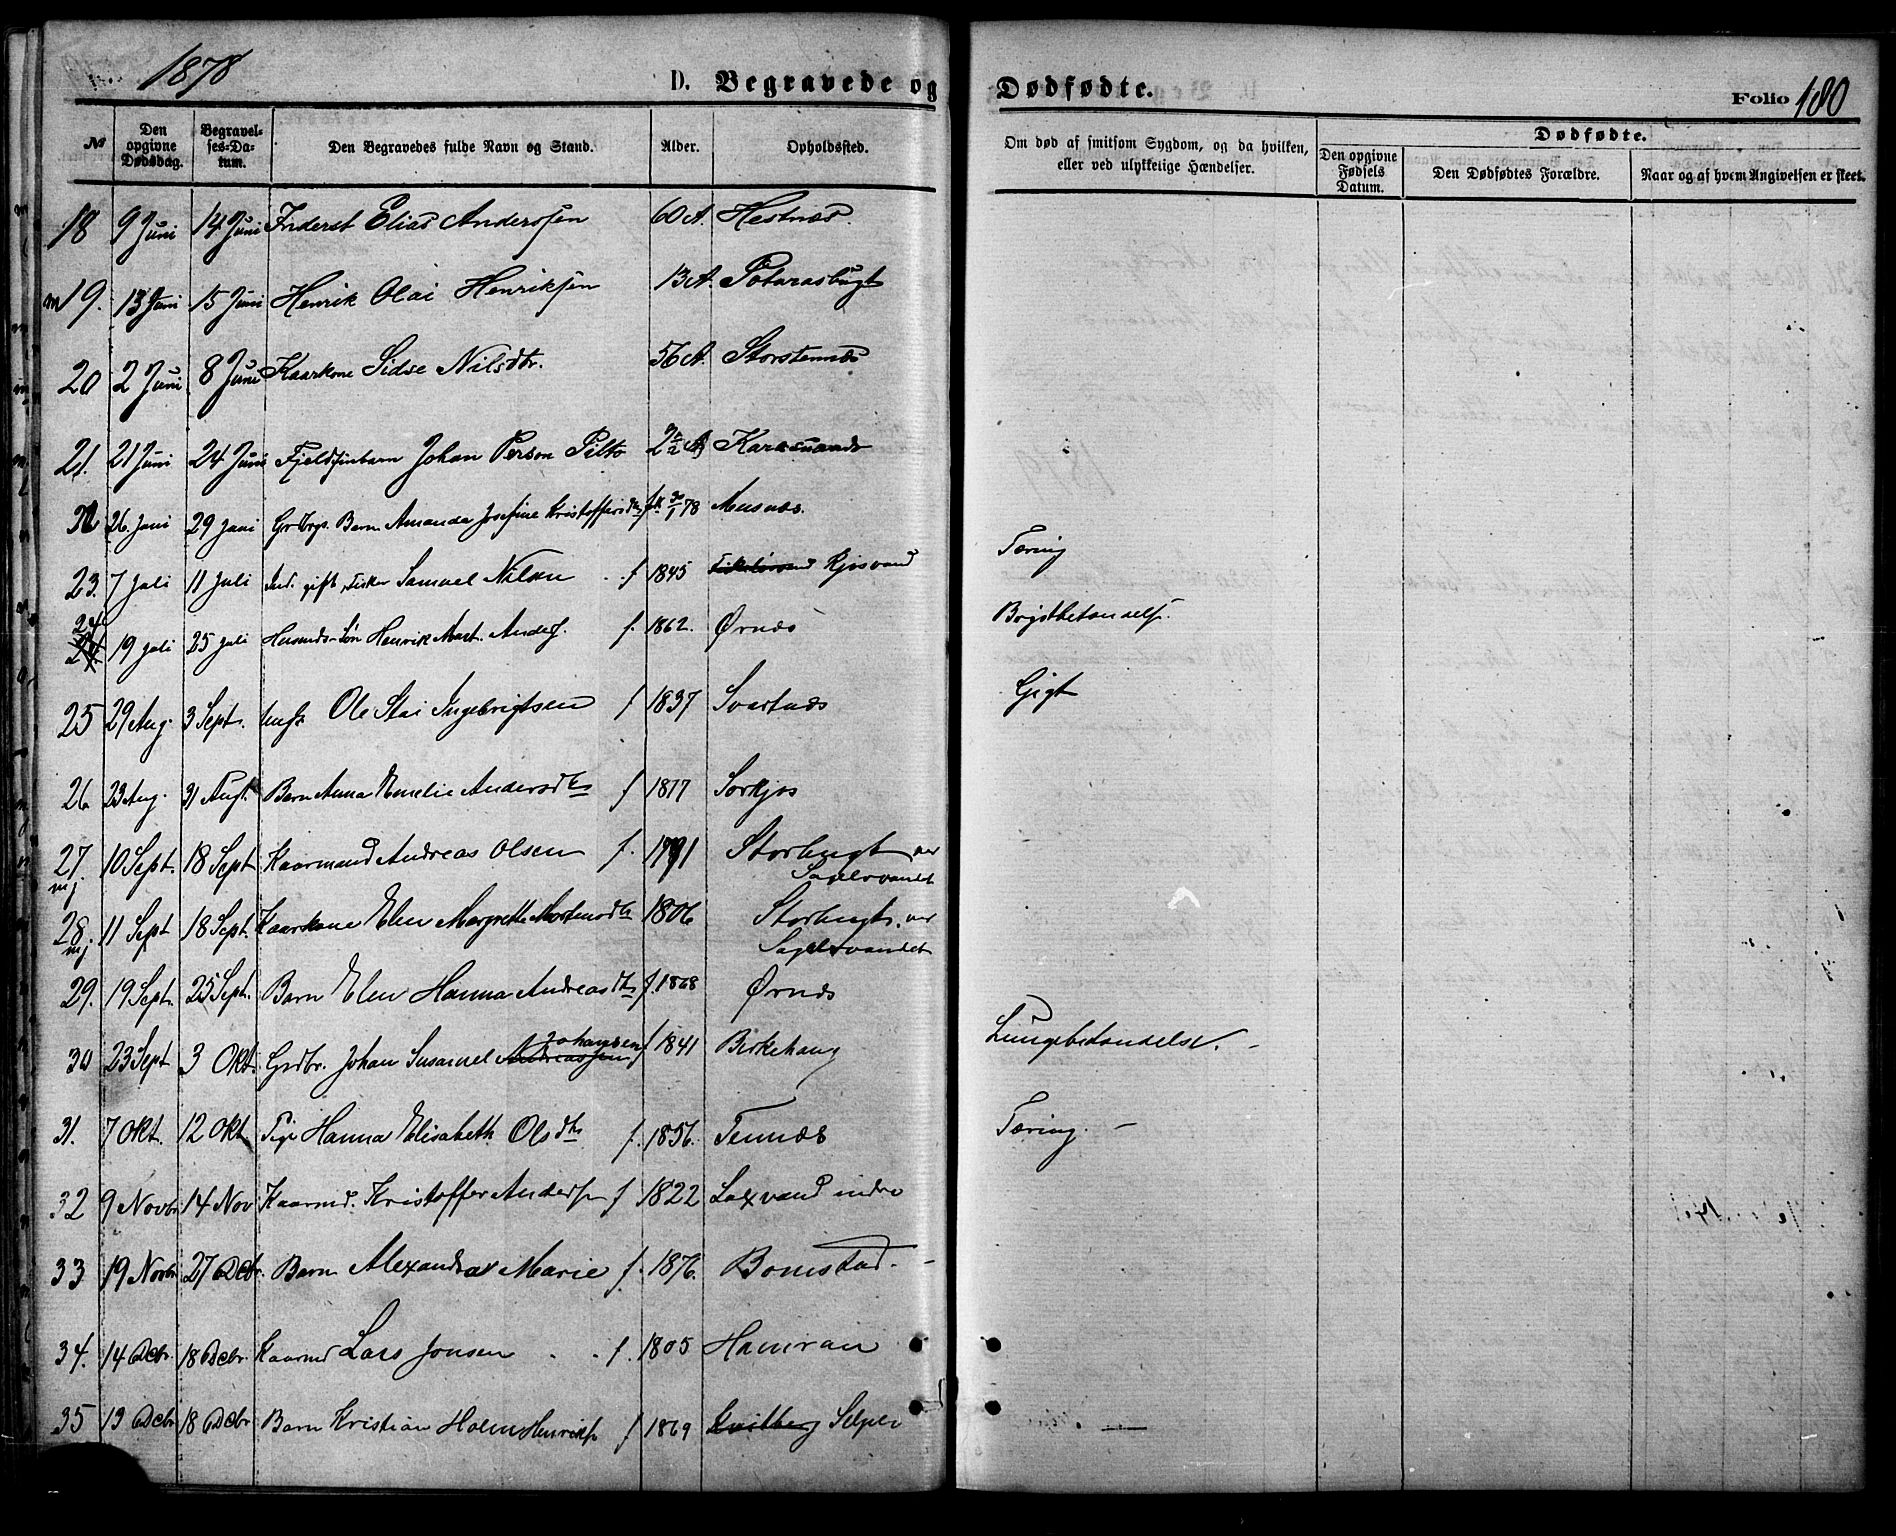 1878
D. Begravede og Dødfødte.
Folio 180
№
Den opgivne Dødsdag.
Begravelses-Datum.
Den Begravedes fulde Navn og Stand.
Alder.
Opholdssted.
Om død af smitsom Sygdom, og da hvilken, eller ved ulykkelige Hændelser.
Dødfødte.
Den opgivne Fødsels Datum.
Den Dødfødtes Forældre.
Naar og af hvem Angivelsen er skeet.
18 9 Juni 14 Juni Inderst Elias Anderssen 60 A. Hestnæs.
19. 13 Juni 15 Juni Henrik Olai Henriksen 13 A.
20 2 Juni 8 Juni Kaarkone Sidse Nilsdtr. 56 A. Storstennæs
21. 21 Juni 24 Juni Fjeldfinbarn Johan Person Pilto Karasuando
22 26. Juni 29 Juni Grdbrgs. Barn Amanda Josefine Kristoffersdtr f. 30/1 78
23. 7 Juli 11 Juli Ind. gift, Fisker Samuel Nilsen f 1845 Kjosvand Tæring
24 19 Juli 25 Juli Husmds-Søn Henrik Mart. Anders. f. 1862. Ørnæs Brystbetændelse.
25 29 Aug. 3 Sept. Ole Stai Ingebrigtsen f 1837 Svartnæs Gigt
26 23 Aug. 31 Aug. Barn Anna Emelie Andersdtr f 1877 Sørkjos
27. 10 Sept. 18 Sept Kaarmand Andreas Olsen f. 1791 Storbugt ver Sagelvvandet
28. 11 Sept 18 Sept. Kaarkone Elen Margrethe Mortensdtr 1806 Storbugt, ver Sagelvvandet
29. 19 Sept. 25 Sept. Barn Elen Hanna Andreasdtr f. 1868 Ørnæs
30 23 Sept 3 Okt. Grdbr. Johan Susamel Andreassen Johansen f 1841 Birkehaug Lungebetændelse. -
31. 7 Okt. 12 Okt. Pige Hanna Elisabeth Olsdtr f. 1856. Tennæs Tæring. -
32 9 Novbr 14 Nov Kaarmd. Kristoffer Anders. f 1822 Laxvand indre
33 19 Novbr 27 Dcbr. Barn Alexandra Marie f. 1876. Bomstad. -
34. 14 Dcbr. 18 Dcbr. Kaarmd Lars Jonsen f. 1805 Hamvan
35 13 Dcbr 18 Dcbr Barn Kristian Holm Henriks. f 1869 Kvitberg